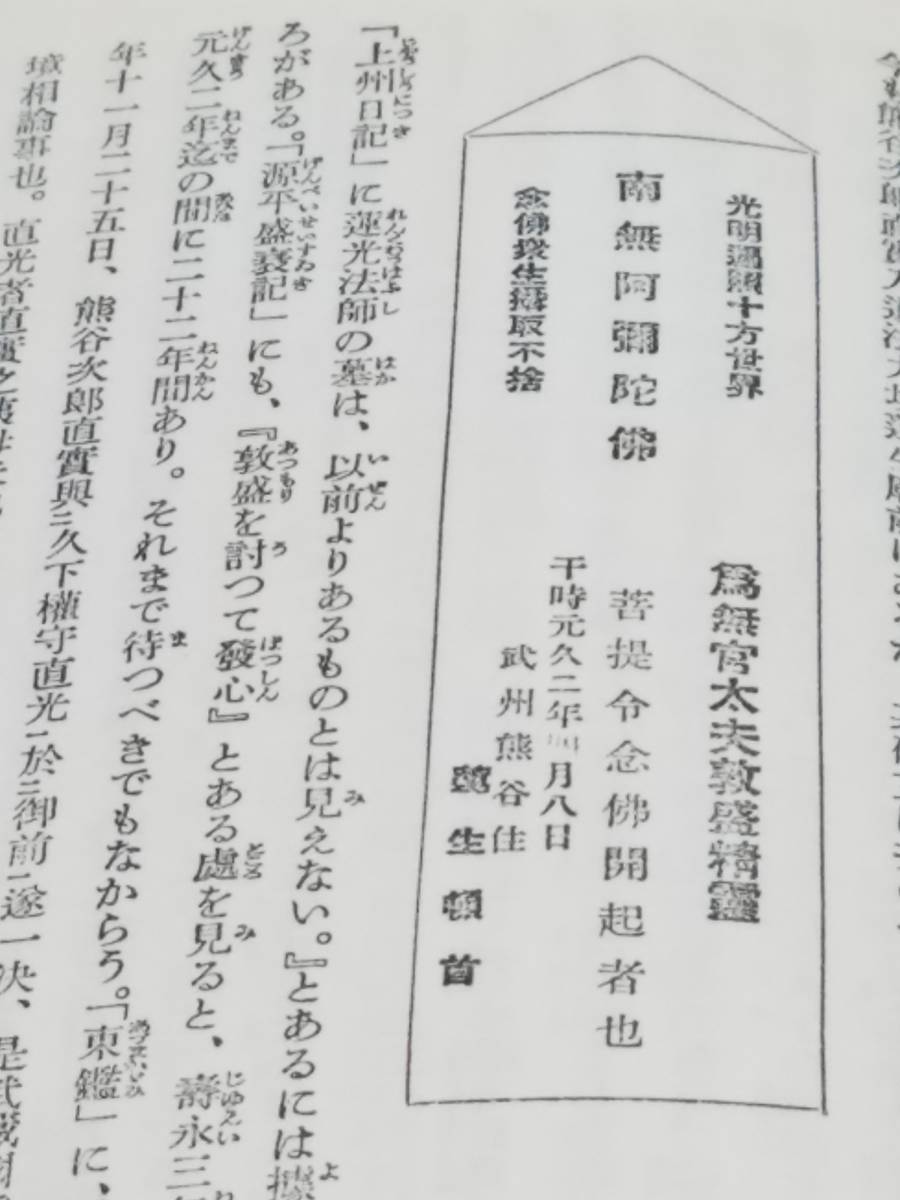 光明遍照十方世界
爲無官太夫敦盛精靈
南無阿彌陀佛
菩提令念佛開起者也
念佛衆生攝取不捨
干時元久二年四月八日
武州熊谷住
蓮生頓首
「上州日記」に蓮光法師の墓は、以前よりあるものとは見えない。』とあるには據
ろがある。「源平盛衰記」にも、『敦盛を討つて發心』とある處を見ると、壽永三
元久二年迄の間に二十二年間あり。それまで待つべきでもなからう。「東鑑」に、
年十一月二十五日、熊谷次郎直實與ニ久下權守直光一於ニ御前ニ遂一決、是武藏國
境相論事也。直光者直實之